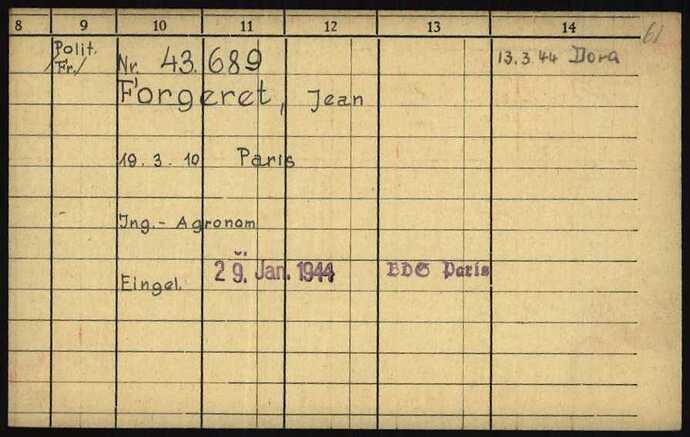 8 9 10 11 12 13 14
61
Polit.
/Fr./
Nr. 43.689
13.3.44 Dora
Forgeret, Jean
19.3.10 Paris
Ing.- Agronom
Eingel. 29. Jan. 1944 BDS Paris